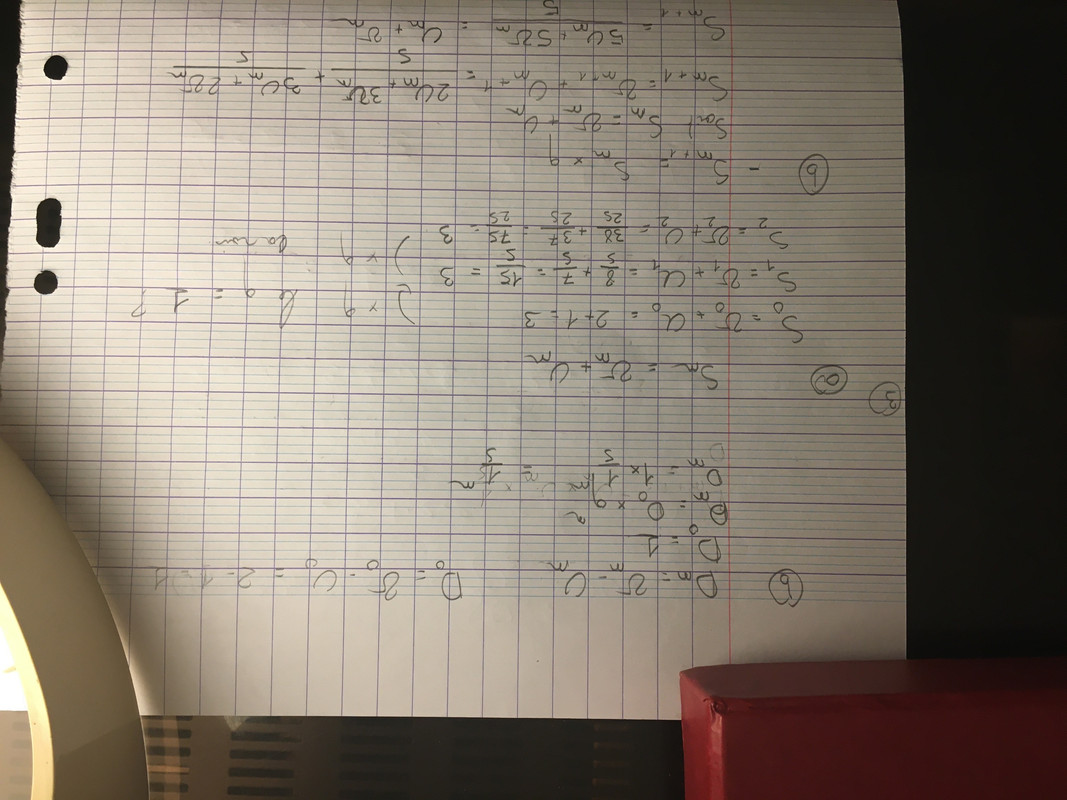 (b) Dn = vn - Un D0 = v0 - U0 = 2-1=1
D0 = 1
Dn = D0 × q^n
Dn = 1 × 1/5^n = 1/5^n
(3)
(a) Sn = vn + Un
S0 = v0 + U0 = 2+1=3
) × q le q = 1 ?
S1 = v1 + U1 = 8/5 + 7/5 = 15/5 = 3
) × q
S2 = v2 + U2 = 38/25 + 37/25 = 75/25 = 3
(b) - Sn+1 = Sn × q
Soit Sn = vn + Un
Sn+1 = vn+1 + Un+1 = (2Un + 3vn)/5 + (3Un + 2vn)/5
Sn+1 = (5Un + 5vn)/5 = Un + vn